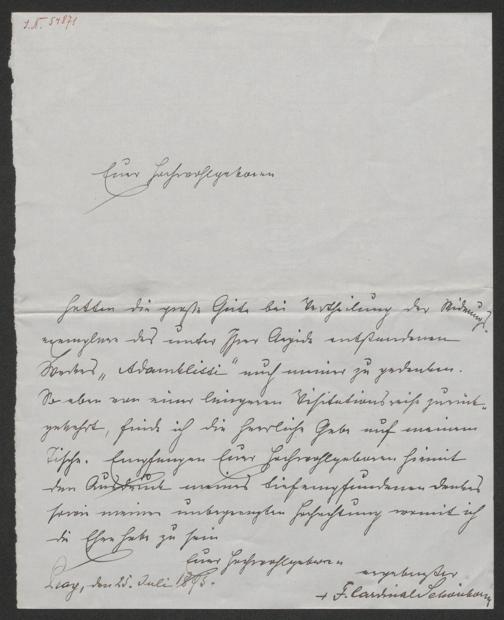 I.N. 54871
Euer Hochwohlgeboren
hatten die große Güte bei Vertheilung der Widmungs-
exemplare des unter Ihrer Aegide entstandenen
Werkes „Adamklissi“ auch meiner zu gedenken.
So eben von einer längeren Visitationsreise zurück-
gekehrt, finde ich die herrliche Gabe auf meinem
Tische. Empfangen Euer Hochwohlgeboren hiemit
den Ausdruck meines tiefempfundenen Dankes
sowie meiner unbegrenzten Hochachtung womit ich
die Ehre habe zu sein
Euer Hochwohlgeboren
ergebenster
Prag, den 25. Juli
+ F. Cardinal Schönborn